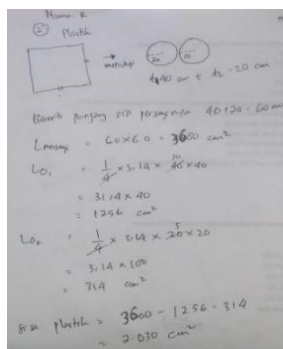 Nama: R
② Plastik
→ menutupi
20
10
d₁ 40 cm + d₂ = 20 cm
Berarti panjang sisi perseginya 40+20 = 60 cm
L persegi = 60 x 60 = 3600 cm²
LO₁ = 1/4 x 3.14 x 40 x 40
10
= 31,4 x 40
= 1256 cm²
LO₂ = 1/4 x 3.14 x 20 x 20
5
= 3,14 x 100
= 314 cm²
Sisa plastik = 3600 - 1256 - 314
= 2.030 cm²